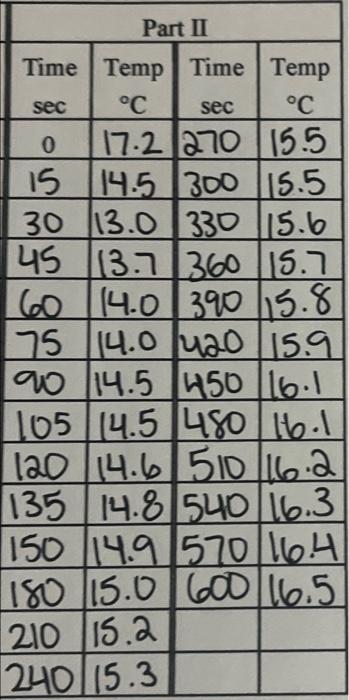 Part II
Time Temp Time Temp
sec °C sec °C
0 17.2 270 15.5
15 14.5 300 15.5
30 13.0 330 15.6
45 13.7 360 15.7
60 14.0 390 15.8
75 14.0 420 15.9
90 14.5 450 16.1
105 14.5 480 16.1
120 14.6 510 16.2
135 14.8 540 16.3
150 14.9 570 16.4
180 15.0 600 16.5
210 15.2
240 15.3